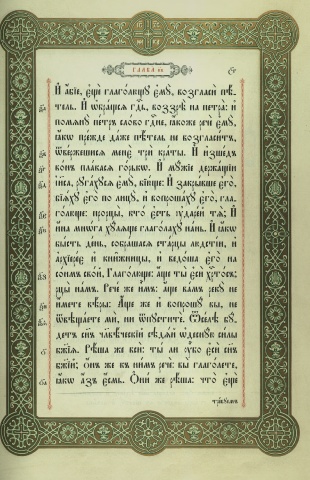 ГЛАВА к҃в
И҆ а҆́бїе, є҆щѐ глаго́лющꙋ є҆мꙋ̀, возгласѝ пѣ́-
тель. И҆ ѡ҆бра́щсѧ гдⷭ҇ь, воззрѣ̀ на петра̀: и҆
помѧнꙋ̀ пе́тръ сло́во гдⷭ҇не, ꙗ҆́коже речѐ є҆мꙋ̀,
ꙗ҆́кѡ пре́жде да́же пѣ́тель не возгласи́тъ,
ѿве́ржешисѧ менє̀ трѝ кра́ты. И҆ и҆зше́дъ
во́нъ пла́касѧ го́рькѡ. И҆ мꙋ́жїе держа́щїи
і҆и҃са, рꙋга́хꙋсѧ є҆мꙋ̀, бїю́ще: И҆ закры́вше є҆го̀,
бїѧ́хꙋ є҆го̀ по лицꙋ̀, и҆ вопроша́хꙋ є҆го̀, гла-
го́люще: прорцы̀, кто̀ є҆́сть ᲂу҆даре́й тѧ̀; И҆
и҆́на мнѡ́га хꙋ́лѧще глаго́лахꙋ на́нь. И҆ ꙗ҆́кѡ
бы́сть де́нь, собра́шасѧ ста́рцы лю́дстїи, и҆
а҆рхїере́є и҆ кни́жницы, и҆ ведо́ша є҆го̀ на
со́нмъ сво́й, Глаго́люще: а҆́ще ты̀ є҆сѝ хрⷭ҇то́съ;
рцы̀ на́мъ. Рече́ же и҆̀мъ: а҆́ще ва́мъ рекꙋ̀ не
и҆́мете вѣ́ры: А҆́ще же и҆ вопрошꙋ̀ вы̀, не
ѿвѣща́ете мѝ, ни ѿпꙋститѐ. Ѿсе́лѣ бꙋ́-
детъ сн҃ъ чл҃вѣ́ческїй сѣдѧ́й ѡ҆деснꙋ́ю си́лы
бж҃їѧ. Рѣ́ша же всѝ: ты́ ли ᲂу҆̀бо є҆сѝ сн҃ъ
бж҃їй; Ѻ҆́нъ же къ ни̑мъ речѐ: вы̀ глаго́лете,
ꙗ҆́кѡ а҆́зъ є҆́смь. Ѻ҆ни́ же рѣ́ша: что̀ є҆щѐ
тре́бꙋемъ